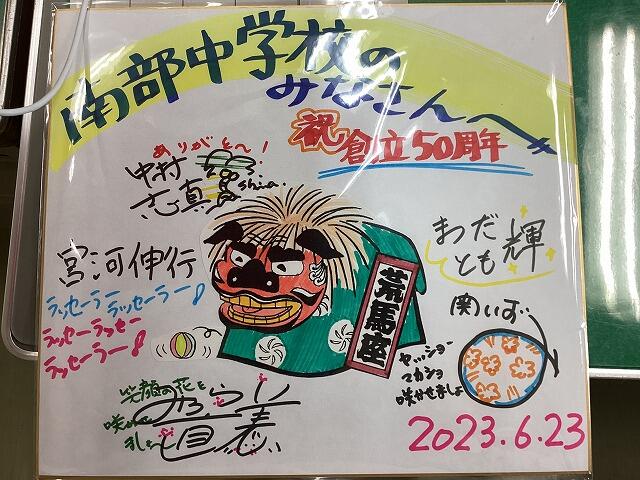 南部中学校の
みなさんへ
祝 創立50周年
ありがと〜!
中村
志真
shia.
宮河伸行
ラッセーラー
ラッセーラー♪
ラッセーラッセー
ラッセーラー♪
荒馬座
まつだ
とも輝
関いず
ヤッショー
マカショ
咲かせましょ
笑顔の花を
咲
ましょ
2023.6.23